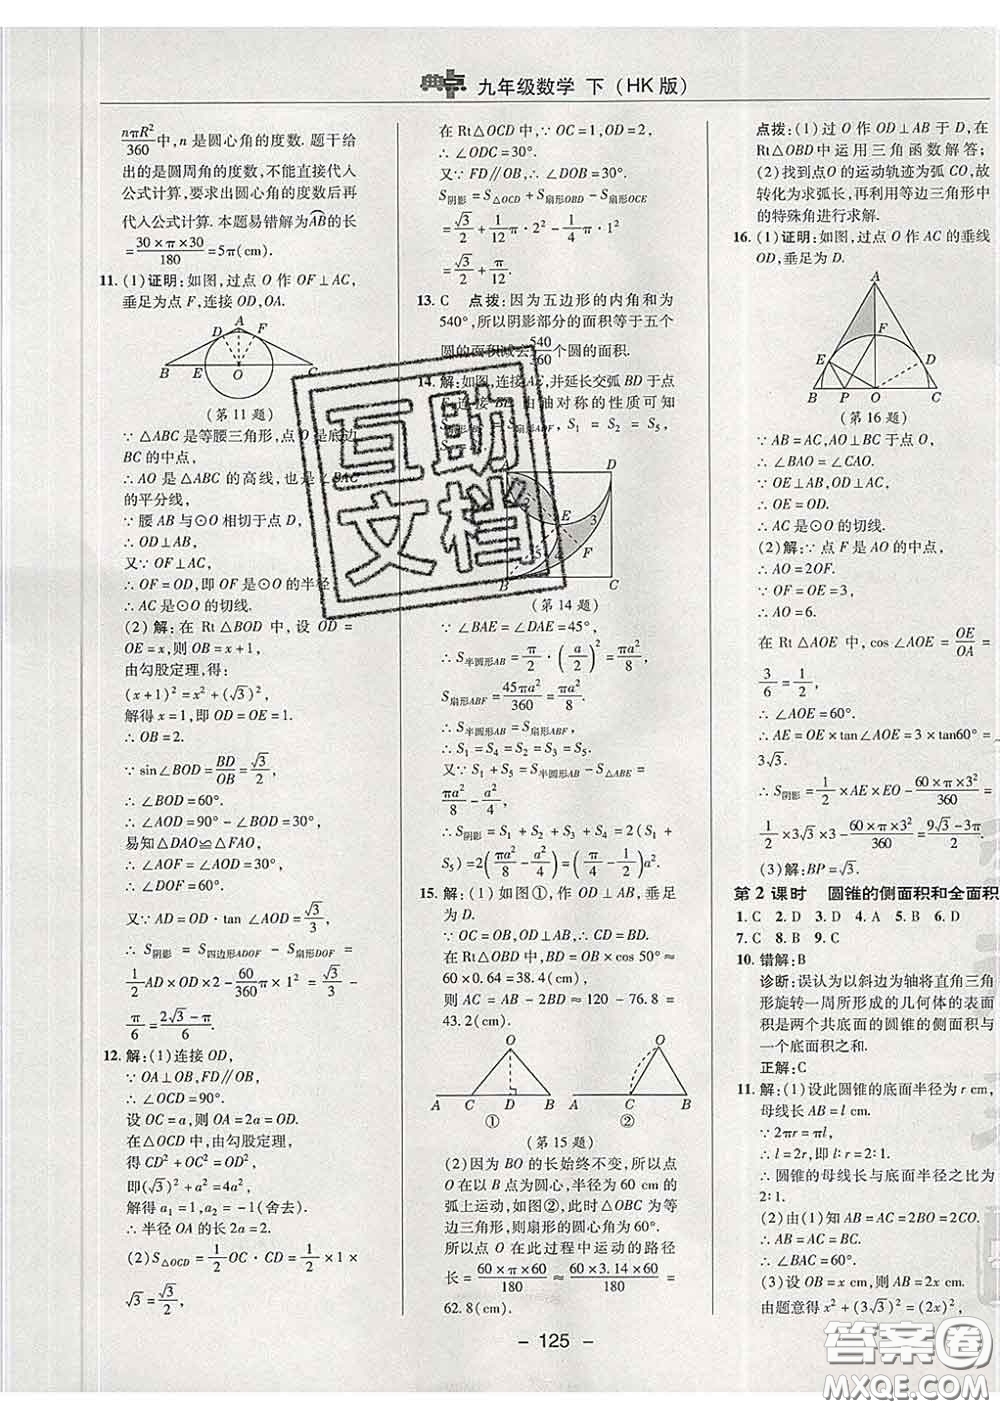 典点 九年级数学 下(HK版)
nπR²/360中,n是圆心角的度数.题干给
出的是圆周角的度数,不能直接代入
公式计算,要求出圆心角的度数后再
代入公式计算.本题易错解为AB的长
=30×π×30/180=5π(cm).
11.(1)证明:如图,过点O作OF⊥AC,
垂足为点F,连接OD,OA.
A
D F
B O C
(第11题)
∵△ABC是等腰三角形,点O是底边
BC的中点,
∴AO是△ABC的高线,也是∠BAC
的平分线,
∵腰AB与⊙O相切于点D,
∴OD⊥AB,
又∵OF⊥AC,
∴OF=OD,即OF是⊙O的半径,
∴AC是⊙O的切线.
(2)解:在Rt△BOD中,设OD=
OE=x,则OB=x+1,
由勾股定理,得:
(x+1)²=x²+(√3)²,
解得x=1,即OD=OE=1.
∴OB=2.
∵sin∠BOD=BD/OB=√3/2,
∴∠BOD=60°.
∴∠AOD=90°-∠BOD=30°.
易知△DAO≌△FAO,
∴∠AOF=∠AOD=30°.
∴∠DOF=60°.
又∵AD=OD·tan∠AOD=√3/3,
∴S阴影=S四边形ADOF-S扇形DOF=
1/2AD×OD×2-60/360π×1²=√3/3-
π/6=(2√3-π)/6.
12.解:(1)连接OD,
∵OA⊥OB,FD∥OB,
∴∠OCD=90°.
设OC=a,则OA=2a=OD,
在△OCD中,由勾股定理,
得CD²+OC²=OD²,
即(√3)²+a²=4a²,
解得a₁=1,a₂=-1(舍去).
∴半径OA的长2a=2.
(2)S△OCD=1/2OC·CD=1/2×1×
√3=√3/2,
在Rt△OCD中,∵OC=1,OD=2,
∴∠ODC=30°.
又∵FD∥OB,∴∠DOB=30°.
S阴影=S△OCD+S扇形OBD-S扇形OCE
=√3/2+1/12π·2²-1/4π·1²
=√3/2+π/12.
13.C 点拨:因为五边形的内角和为
540°,所以阴影部分的面积等于五个
圆的面积减去540/360个圆的面积.
14.解:如图,连接AC,并延长交弧BD于点
F,连接BE.由轴对称的性质可知
S₁=S₂=S₅,
D
E 3
4 F
C
(第14题)
∵∠BAE=∠DAE=45°,
∴S半圆形AB=π/2·(a/2)²=πa²/8,
S扇形ABF=45πa²/360=πa²/8.
∴S半圆形AB=S扇形ABF,
∴S₁=S₄=S₂=S₅.
又∵S₁+S₅=S半圆形AB-S△ABE=
πa²/8-a²/4,
∴S阴影=S₁+S₂+S₃+S₄=2(S₁+
S₅)=2(πa²/8-a²/4)=(π/4-1/2)a².
15.解:(1)如图①,作OD⊥AB,垂足
为D.
∵OB=OC,OD⊥AB,
∴OD平分BC,BD=OB×cos50°≈
60×0.64=38.4(cm),
则AC=AB-2BD≈120-76.8=
43.2(cm).
O O
A C D B A C B
① ②
(第15题)
(2)因为BO的长始终不变,所以点
O在以B点为圆心,半径为60cm的
弧上运动,如图②,此时△OBC为等
边三角形,则扇形的圆心角为60°.
所以点O在此过程中运动的路径
长=60×π×60/180≈60×3.14×60/180=
62.8(cm)
点拨:(1)过O作OD⊥AB于点D,在
Rt△OBD中运用三角函数解答;
(2)找到点O的运动轨迹为弧CO,故
转化为求弧长,再利用等边三角形中
的特殊角进行求解.
16.(1)证明:如图,过点O作AC的垂线
OD,垂足为D.
A
F
E D
B P O C
(第16题)
∵AB=AC,AO⊥BC于点O,
∴∠BAO=∠CAO.
∵OE⊥AB,OD⊥AC,
∴OE=OD.
∴AC是⊙O的切线.
(2)解:∵点F是AO的中点,
∴AO=2OF.
∵OF=OE=3,
∴AO=6.
在Rt△AOE中,cos∠AOE=OE/OA=
3/6=1/2,
∴∠AOE=60°.
∴AE=OE×tan∠AOE=3×tan60°=
3√3.
∴S阴影=1/2×AE×EO-60×π×3²/360=
1/2×3√3×3-60×π×3²/360=(9√3-3π)/2.
(3)解:BP=√3.
第2课时 圆锥的侧面积和全面积
1.C 2.D 3.D 4.A 5.B 6.D
7.C 8.B 9.C
10.错解:B
诊断:误认为以斜边为轴将直角三角
形旋转一周所形成的几何体的表面
积是两个共底面的圆锥的侧面积与
一个底面积之和.
正解:C
11.解:(1)设此圆锥的底面半径为r cm,
母线长AB=l cm.
∵2πr=πl,
∴l=2r,即l:r=2:1.
∴圆锥的母线长与底面半径之比为
2:1.
(2)由(1)知AB=AC=2BO=2CO.
∴∠BAC=60°.
(3)设OB=x cm,则AB=2x cm.
由题意得x²+(3√3)²=(2x)²,
- 125 -
互助文档
答案圈
MXQE.COM